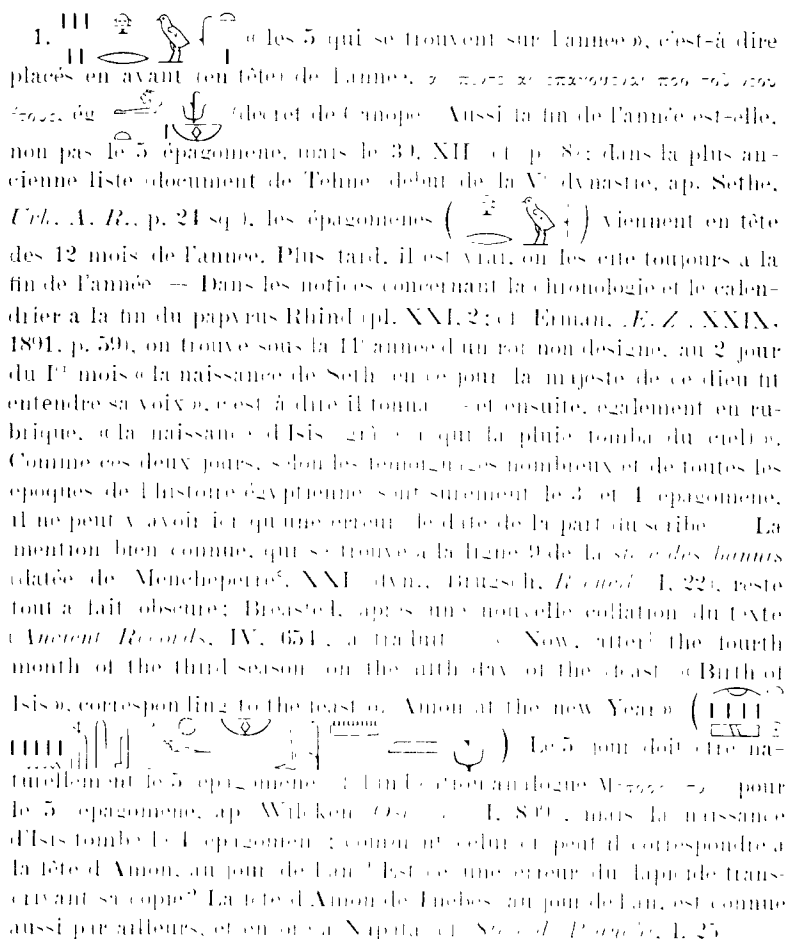 1. « les 5 qui se trouvent sur l'année », c'est-à dire
placés en avant (en tête) de l'année, πρὸ τοῦ νέου
ἔτους, ég. (décret de Canope. Aussi la fin de l'année est-elle,
non pas le 5 épagomène, mais le 30. XII (cf. p. 8); dans la plus an-
cienne liste (document de Tehne, début de la Vᵉ dynastie, ap. Sethe,
Urk. A. R., p. 24 sq.), les épagomènes ( ) viennent en tête
des 12 mois de l'année. Plus tard, il est vrai, on les cite toujours à la
fin de l'année. — Dans les notices concernant la chronologie et le calen-
drier à la fin du papyrus Rhind (pl. XXI, 2; cf. Erman, Æ. Z., XXIX,
1891, p. 59), on trouve sous la 11ᵉ année d'un roi non désigné, au 2 jour
du Iᵉʳ mois « la naissance de Seth en ce jour la majesté de ce dieu fit
entendre sa voix », c'est à dire il tonna — et ensuite, également en ru-
brique, « la naissance d'Isis qui la pluie tomba du ciel) ».
Comme ces deux jours, selon les témoignages nombreux et de toutes les
époques de l'histoire égyptienne sont sûrement le 3 et 4 épagomène,
il ne peut y avoir ici qu'une erreur de date de la part du scribe. La
mention bien connue, qui se trouve à la ligne 9 de la stèle des bannis
(datée de Mencheperrê, XXI dyn., Brugsch, Recueil I, 22), reste
tout à fait obscure; Breasted, après une nouvelle collation du texte
(Ancient Records, IV, 654), a traduit « Now, after the fourth
month of the third season on the fifth day of the feast « Birth of
Isis », corresponding to the feast of Amon at the new Year » (
) Le 5 jour doit être na-
turellement le 5 épagomène pour
le 5 épagomène, ap. Wilcken I, mais la naissance
d'Isis tombe le 4 épagomène; comment celui ci peut il correspondre à
la fête d'Amon, au jour de l'an? Est ce une erreur du lapicide trans-
crivant sa copie? La fête d'Amon de Thèbes au jour de l'an, est connue
aussi par ailleurs, et encore à Napata cf. I, 25